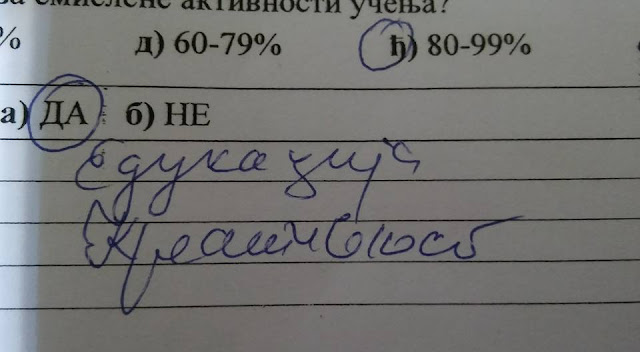 за смислене активности учења?
% д) 60-79% ђ) 80-99%
а) ДА б) НЕ
Едукација
Креативност